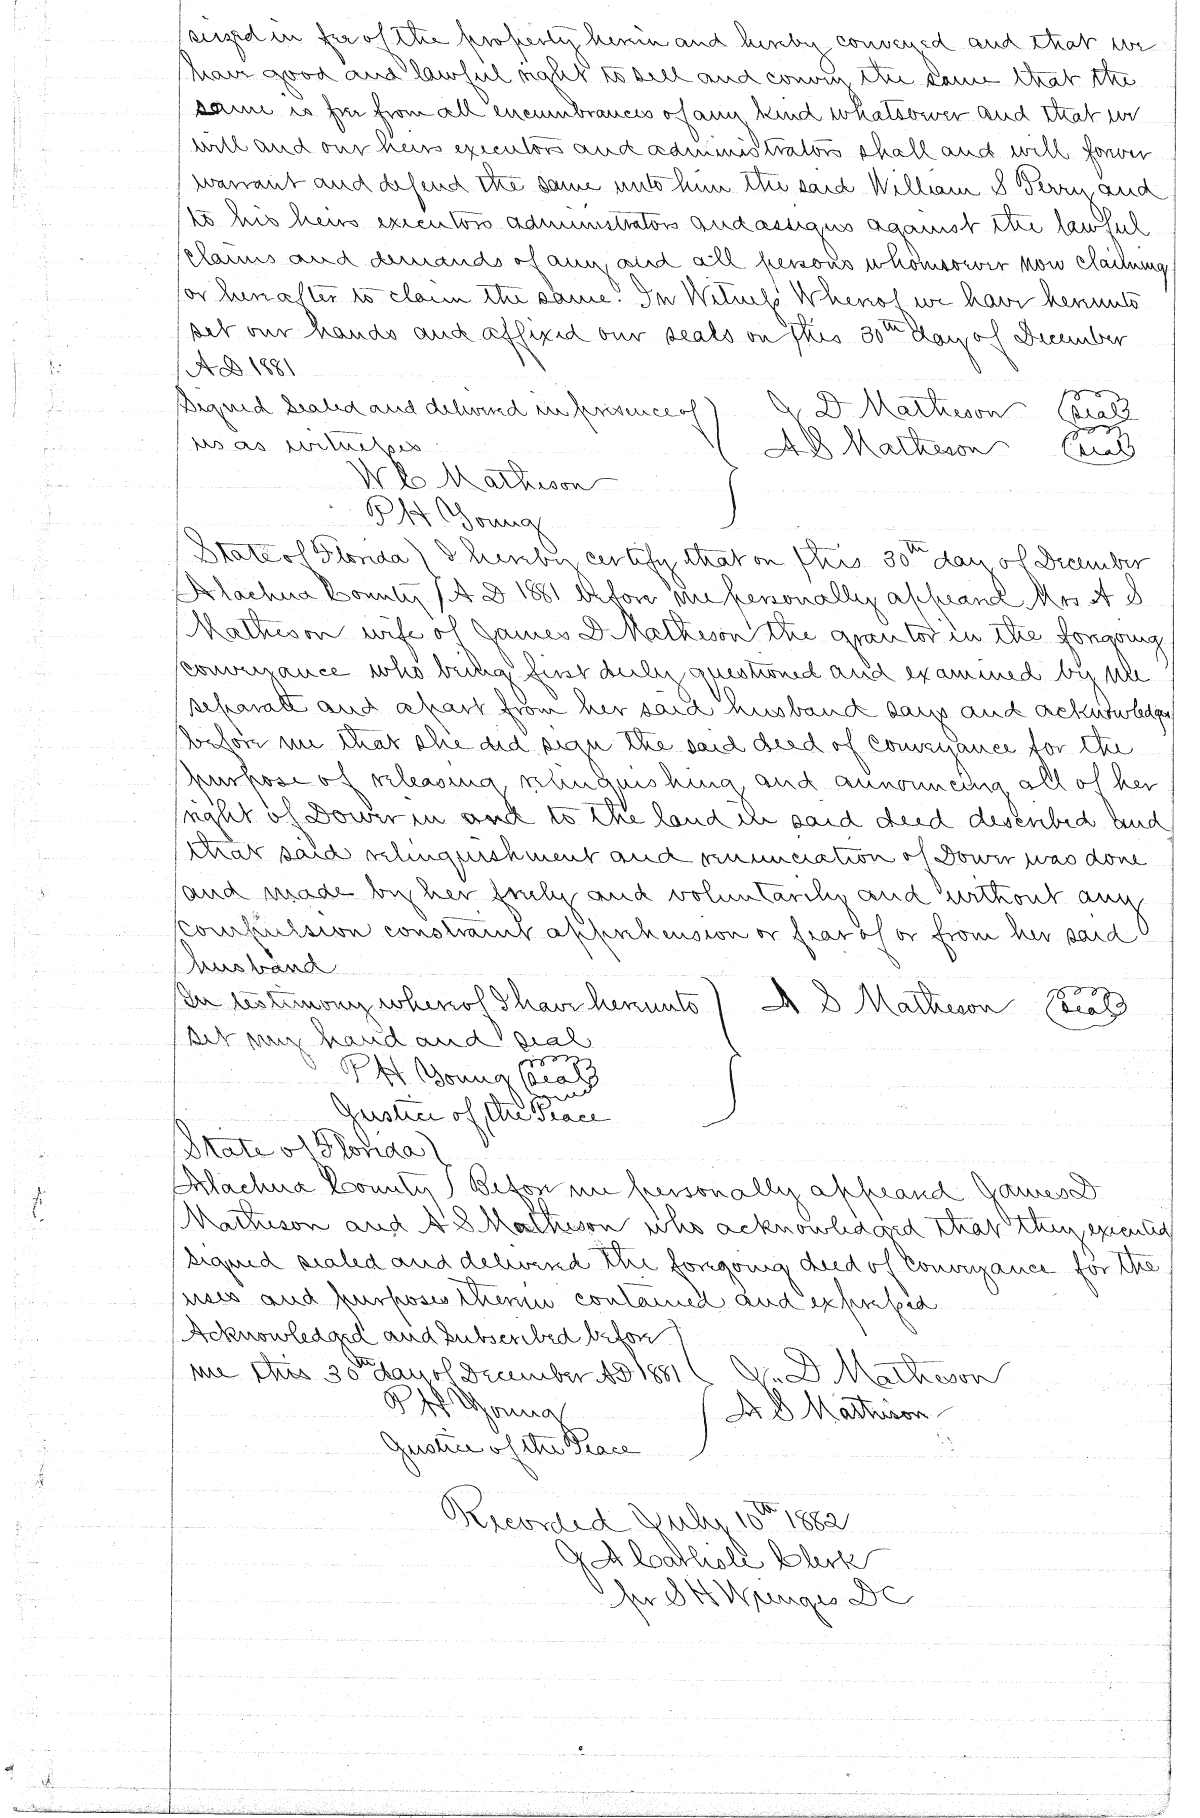 seized in fee of the property herein and hereby conveyed and that we
have good and lawful right to sell and convey the same that the
same is free from all encumbrances of any kind whatsoever and that we
will and our heirs executors and administrators shall and will forever
warrant and defend the same unto him the said William S Perry and
to his heirs executors administrators and assigns against the lawful
claims and demands of any and all persons whomsoever now claiming
or hereafter to claim the same. In Witness Whereof we have hereunto
set our hands and affixed our seals on this 30th day of December
A D 1881
Signed Sealed and delivered in presence of ) J D Matheson (seal)
us as witnesses A S Matheson (seal)
W C Matheson
P H Young
State of Florida ) I hereby certify that on this 30th day of December
Alachua County ) A D 1881 before me personally appeared Mrs A S
Matheson wife of James D Matheson the grantor in the foregoing
conveyance who being first duly questioned and examined by me
separate and apart from her said husband says and acknowledges
before me that she did sign the said deed of conveyance for the
purpose of releasing relinquishing and announcing all of her
right of Dower in and to the land in said deed described and
that said relinquishment and renunciation of Dower was done
and made by her freely and voluntarily and without any
compulsion constraint apprehension or fear of or from her said
husband
In testimony whereof I have hereunto ) A S Matheson (seal)
set my hand and seal
P H Young (seal)
Justice of the Peace
State of Florida )
Alachua County ) Before me personally appeared James D
Matheson and A S Matheson who acknowledged that they executed
signed sealed and delivered the foregoing deed of conveyance for the
uses and purposes therein contained and expressed
Acknowledged and Subscribed before )
me this 30th day of December AD 1881 ( J. D Matheson
P H Young ) A S Matheson
Justice of the Peace
Recorded July 10th 1882
J A Carlisle Clerk
per S H Wienges D C